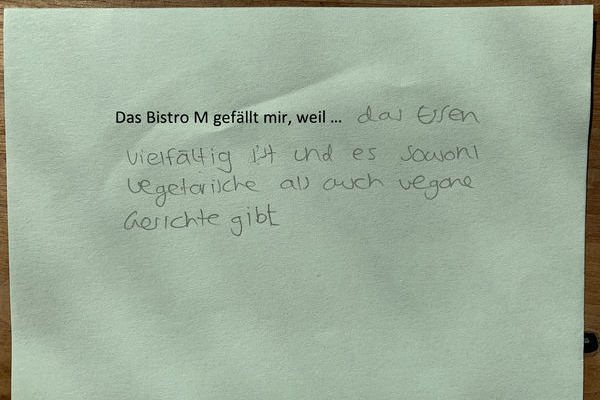 Das Bistro M gefällt mir, weil ... das Essen
vielfältig ist und es sowohl
vegetarische als auch vegane
Gerichte gibt